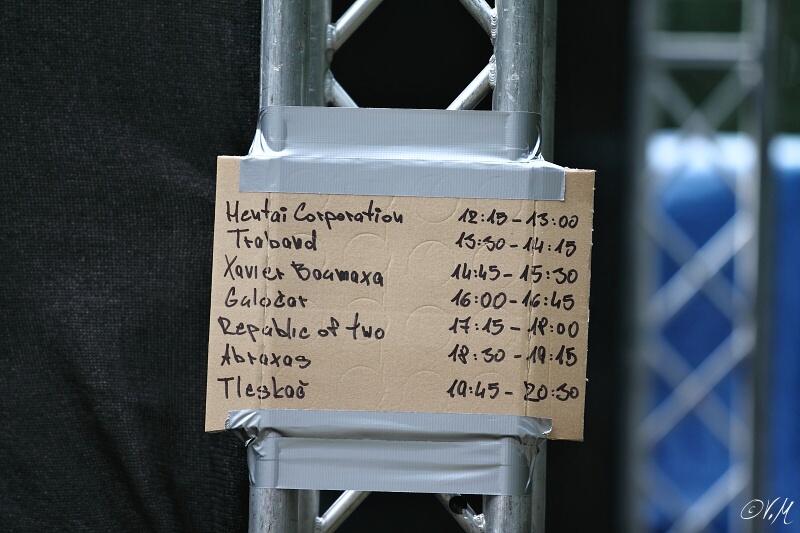 Hentai Corporation 12:15 - 13:00
Traband 13:30 - 14:15
Xavier Baumaxa 14:45 - 15:30
Galočar 16:00 - 16:45
Republic of two 17:15 - 18:00
Abraxas 18:30 - 19:15
Tleskač 19:45 - 20:30
©V.M